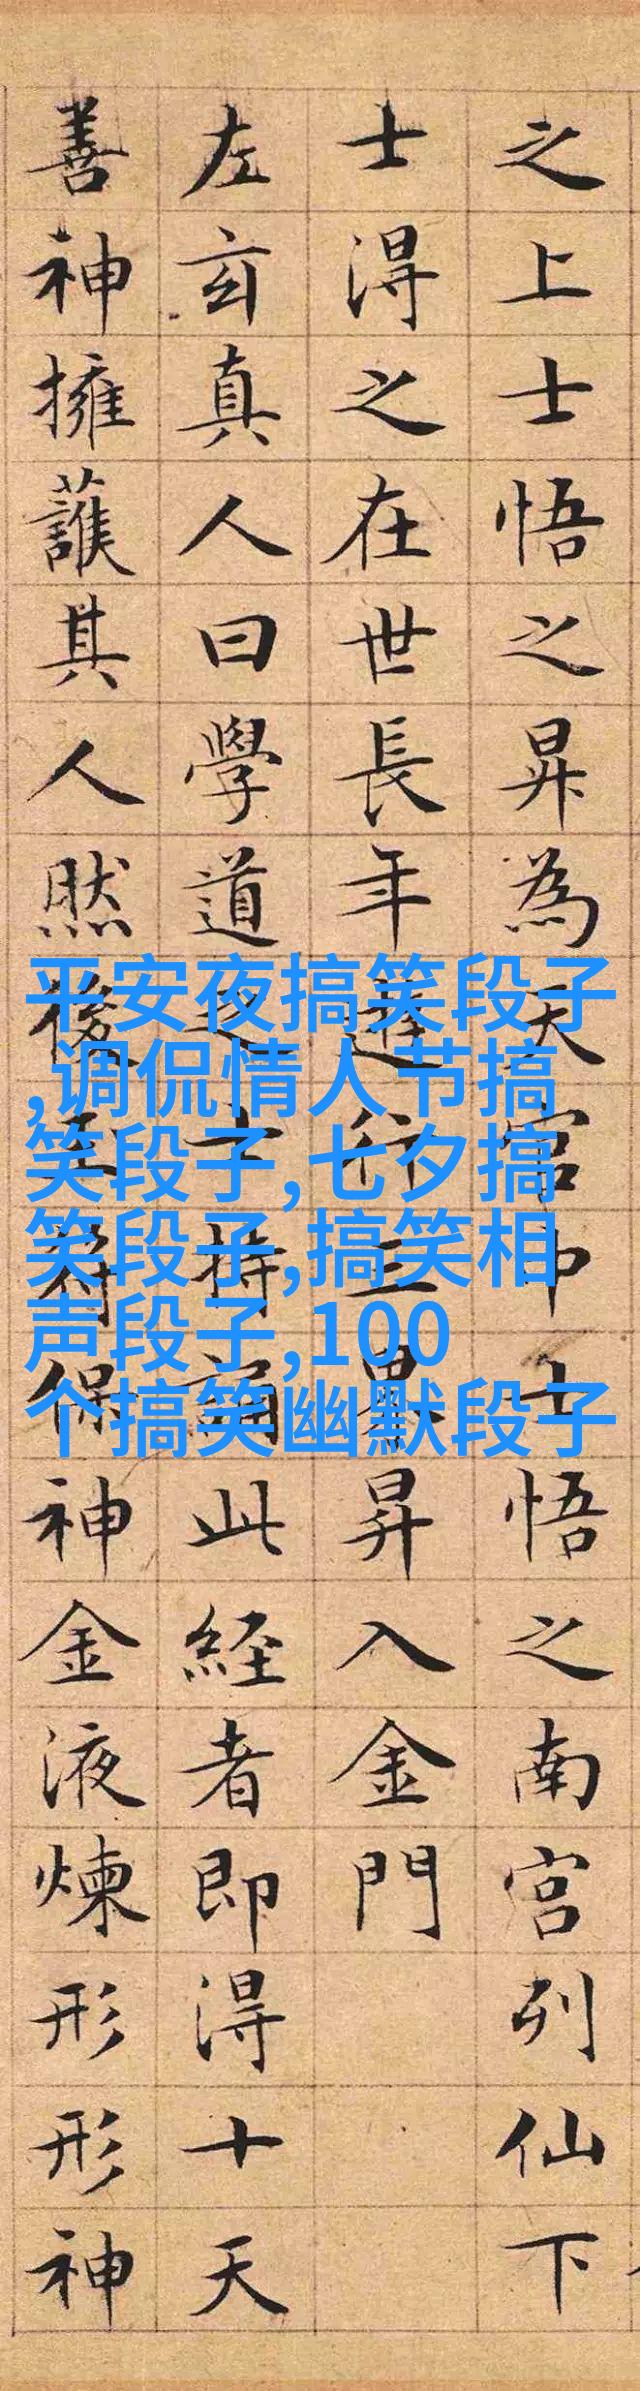 之上士悟之昇為天宮中士悟之南宮列仙下
士淂之在世長年遊行三界昇入金門
左玄真人曰學道之士持誦此經者即淂十天
善神擁護其人然後玉符保神金液煉形形神
平安夜搞笑段子
,调侃情人节搞
笑段子,七夕搞
笑段子,搞笑相
声段子,100
个搞笑幽默段子